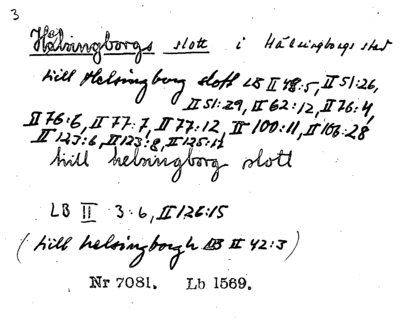 3
Hälsingborgs slott i Hälsingborgs stad
till Helsingborg slott LB II 48:5, II 51:26,
II 51:29, II 62:12, II 76:4,
II 76:6, II 77:7, II 77:12, II 100:11, II 103:28,
II 123:6, II 123:8, II 125:11
till helsingborg slott
LB II 3:6, II 126:15
(till helsingborgh LB II 42:3)
Nr 7081. Lb 1569.